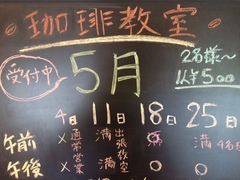 珈琲教室
受付中
5月
2名様〜
4日 11日 18日 25日
午前 ×通常営業 満 出張教室 満 4名様
午後 満 〇 〇